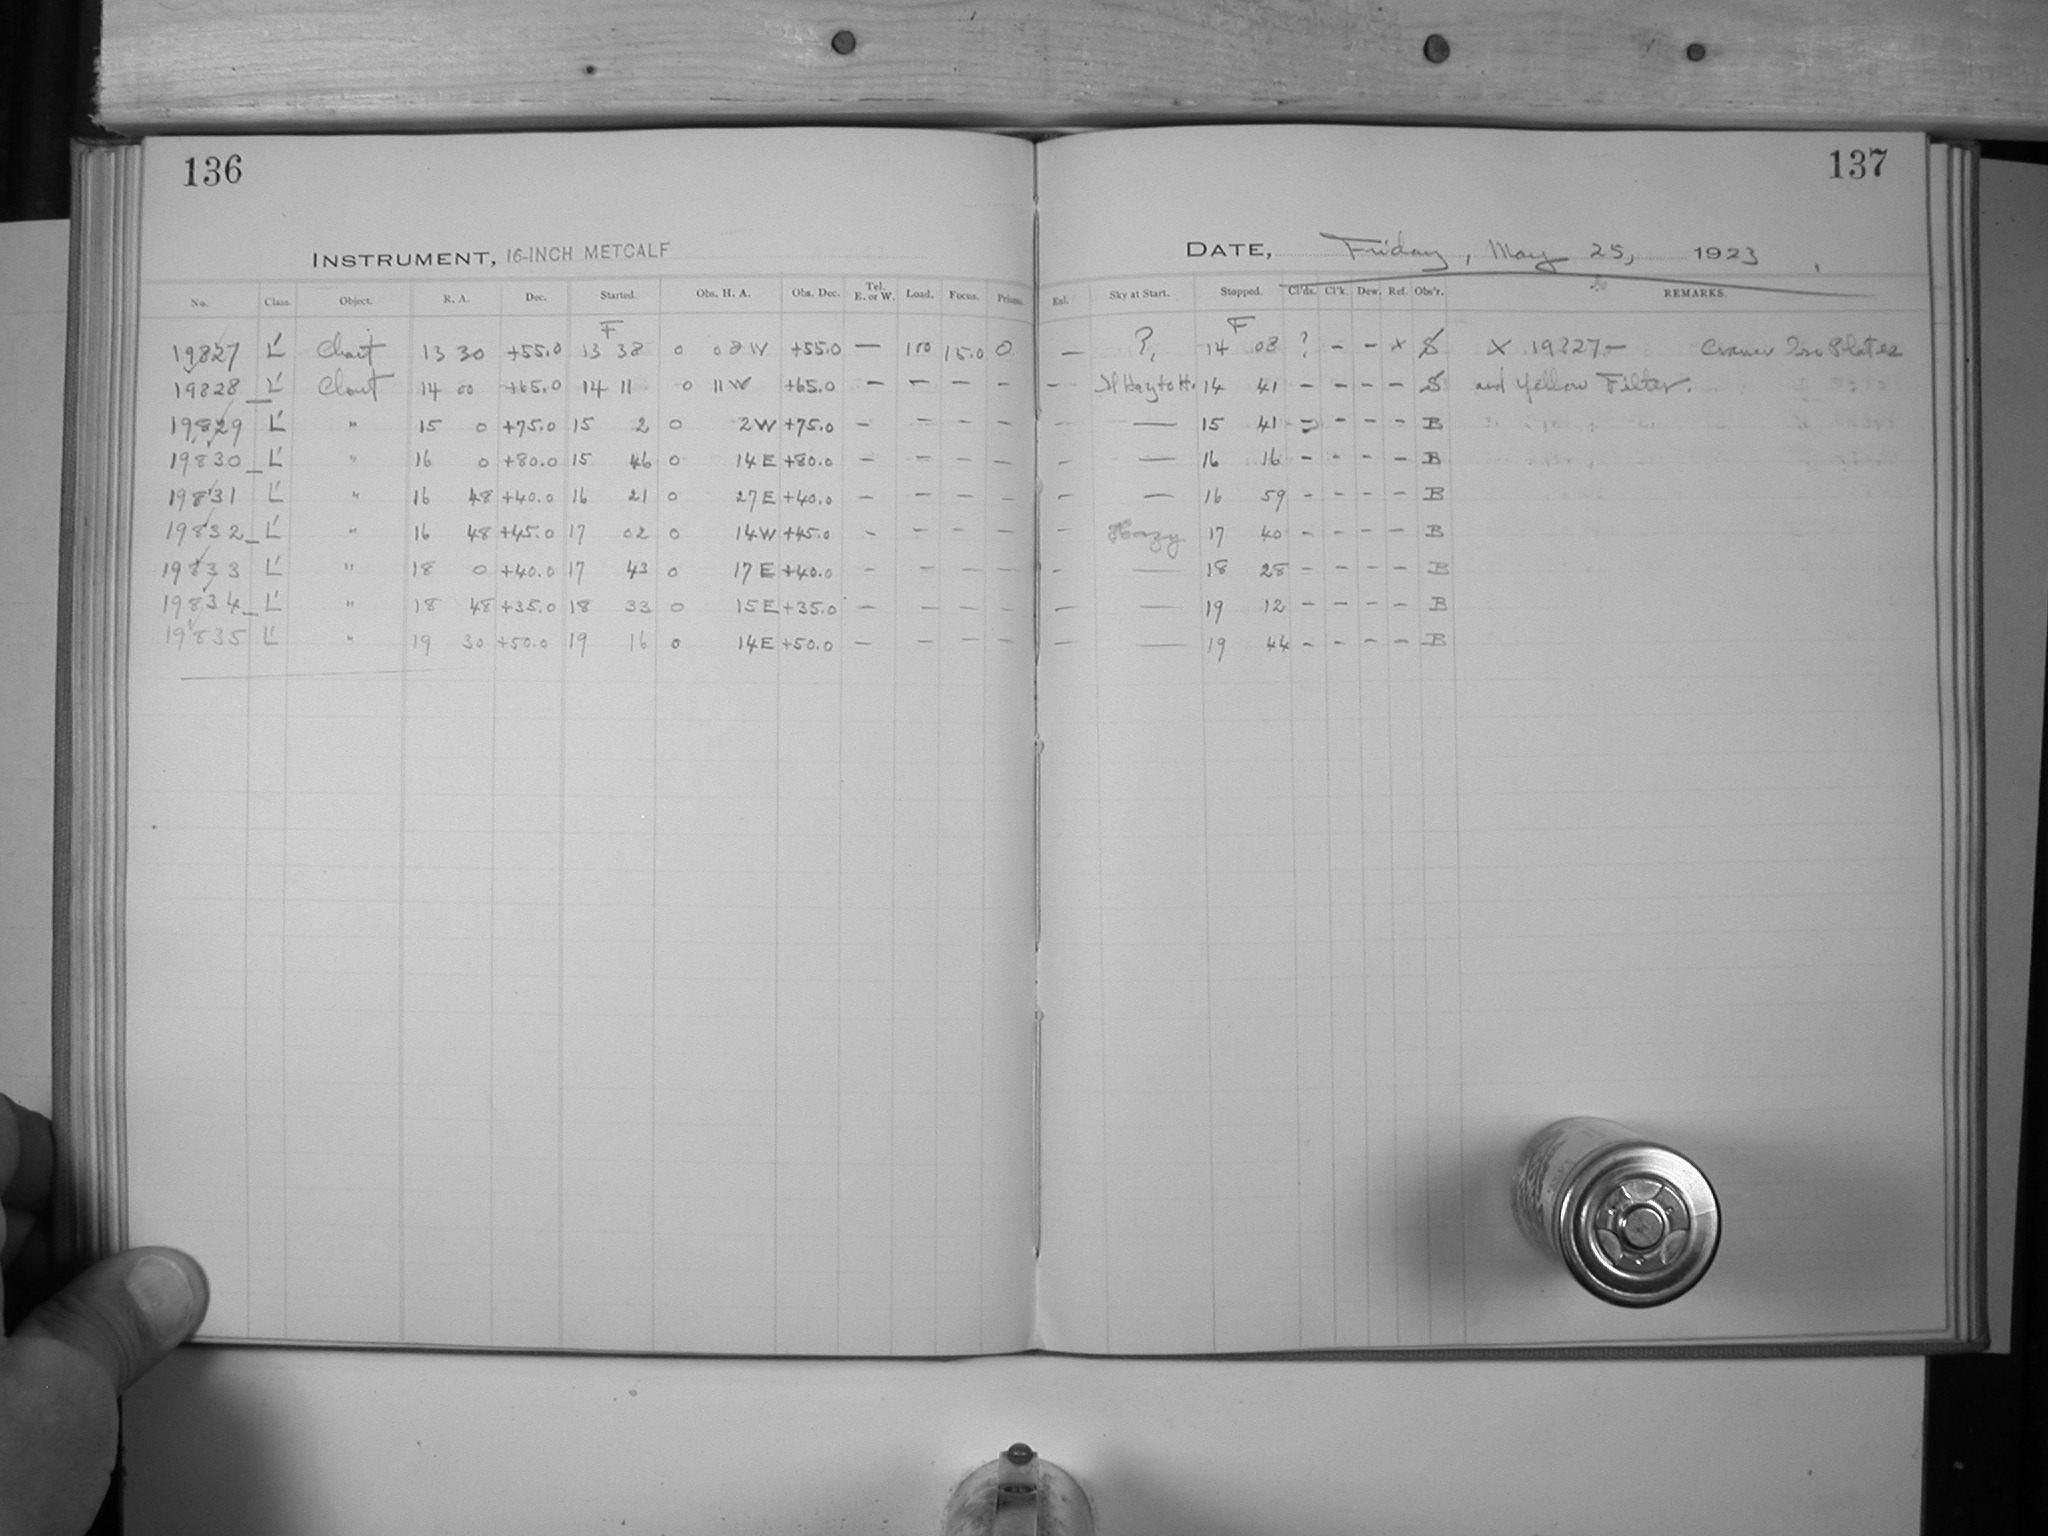 136
137
INSTRUMENT, 16-INCH METCALF
DATE, Friday, May 25, 1923
No. Class. Object. R. A. Dec. Started. Obs. H. A. Obs. Dec. Tel. E. or W. Load. Focus. Prism. Enl. Sky at Start. Stopped. Cl'ds. Cl'k. Dew. Ref. Obs'r. REMARKS.
F F
19827 L' Chart 13 30 +55.0 13 38 0 08 W +55.0 — 100 15.0 0 — ?, 14 08 ? - - x S X 19827— Cramer Iso Plates
19828 L' Chart 14 00 +65.0 14 11 0 11 W +65.0 — — — — — 14 41 - - - - S and Yellow Filter.
19829 L' " 15 0 +75.0 15 2 0 2 W +75.0 — — — — — — 15 41 - - - - B
19830 L' " 16 0 +80.0 15 46 0 14 E +80.0 — — — — — — 16 16 - - - - B
19831 L' " 16 48 +40.0 16 21 0 27 E +40.0 — — — — — — 16 59 - - - - B
19832 L' " 16 48 +45.0 17 02 0 14 W +45.0 — — — — — Hazy 17 40 - - - - B
19833 L' " 18 0 +40.0 17 43 0 17 E +40.0 — — — — — — 18 28 - - - - B
19834 L' " 18 48 +35.0 18 33 0 15 E +35.0 — — — — — — 19 12 - - - - B
19835 L' " 19 30 +50.0 19 16 0 14 E +50.0 — — — — — — 19 44 - - - - B